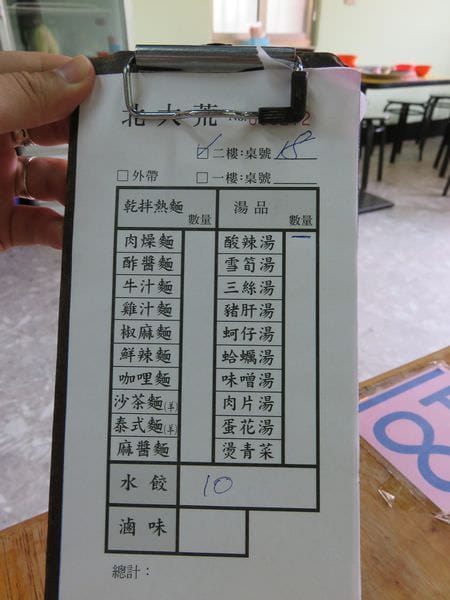 北大荒 No.
☑ 二樓:桌號 18
□ 外帶 □ 一樓:桌號
乾拌熱麵 數量 湯品 數量
肉燥麵 酸辣湯 一
酢醬麵 雪筍湯
牛汁麵 三絲湯
雞汁麵 豬肝湯
椒麻麵 蚵仔湯
鮮辣麵 蛤蠣湯
咖哩麵 味噌湯
沙茶麵(羊) 肉片湯
泰式麵(羊) 蛋花湯
麻醬麵 燙青菜
水餃 10
滷味
總計: